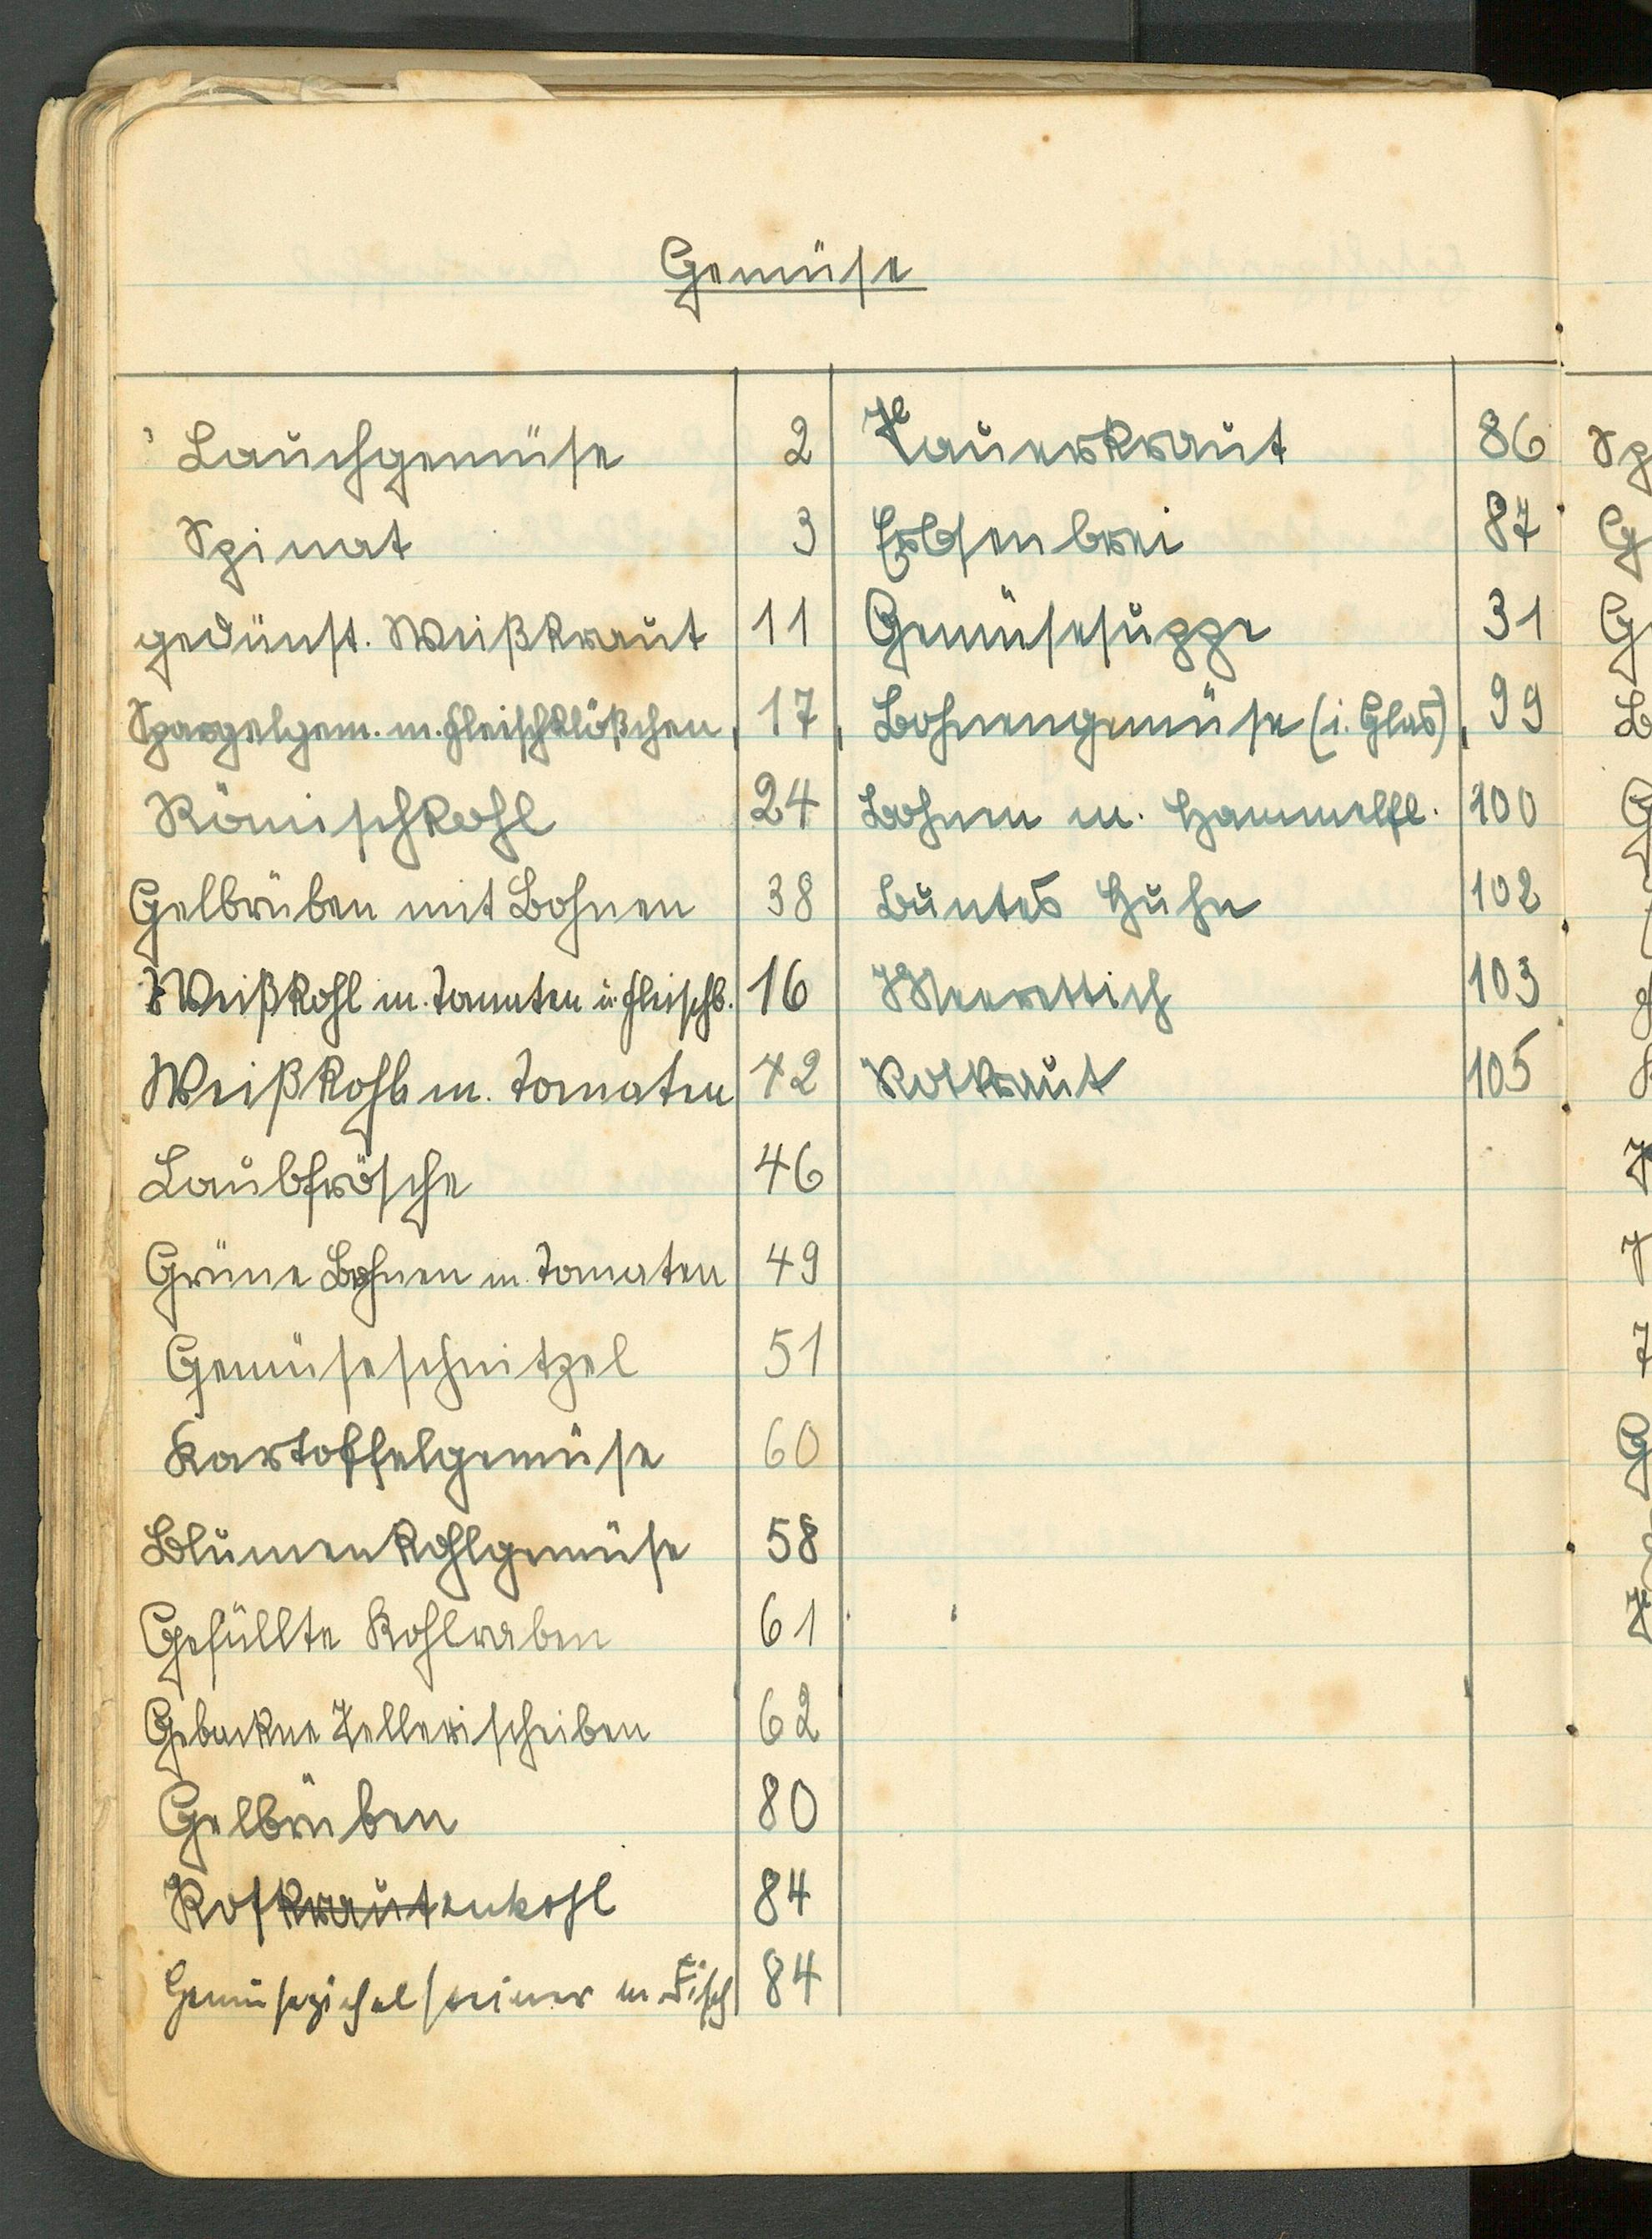 Gemüse
Lauchgemüse 2
Spinat 3
gedünst. Weißkraut 11
Spargelgem. m. Fleischklößchen 17
Römischkohl 24
Gelbrüben mit Bohnen 38
Weißkohl m. Tomaten u. Fleischb. 16
Weißkohl m. Tomaten 42
Laubfrösche 46
Grüne Bohnen m. Tomaten 49
Gemüseschnitzel 51
Kartoffelgemüse 60
Blumenkohlgemüse 58
Gefüllte Kohlraben 61
Gebackne Sellerischeiben 62
Gelbrüben 80
Roskrautenkohl 84
Gemüsepichelsteiner m Fisch 84
Sauerkraut 86
Erbsenbrei 87
Gemüsesuppe 31
Bohnengemüse (i. Glas) 99
Bohnen m. Hammelfl. 100
Buntes Huhn 102
Meerettich 103
Rotkraut 105